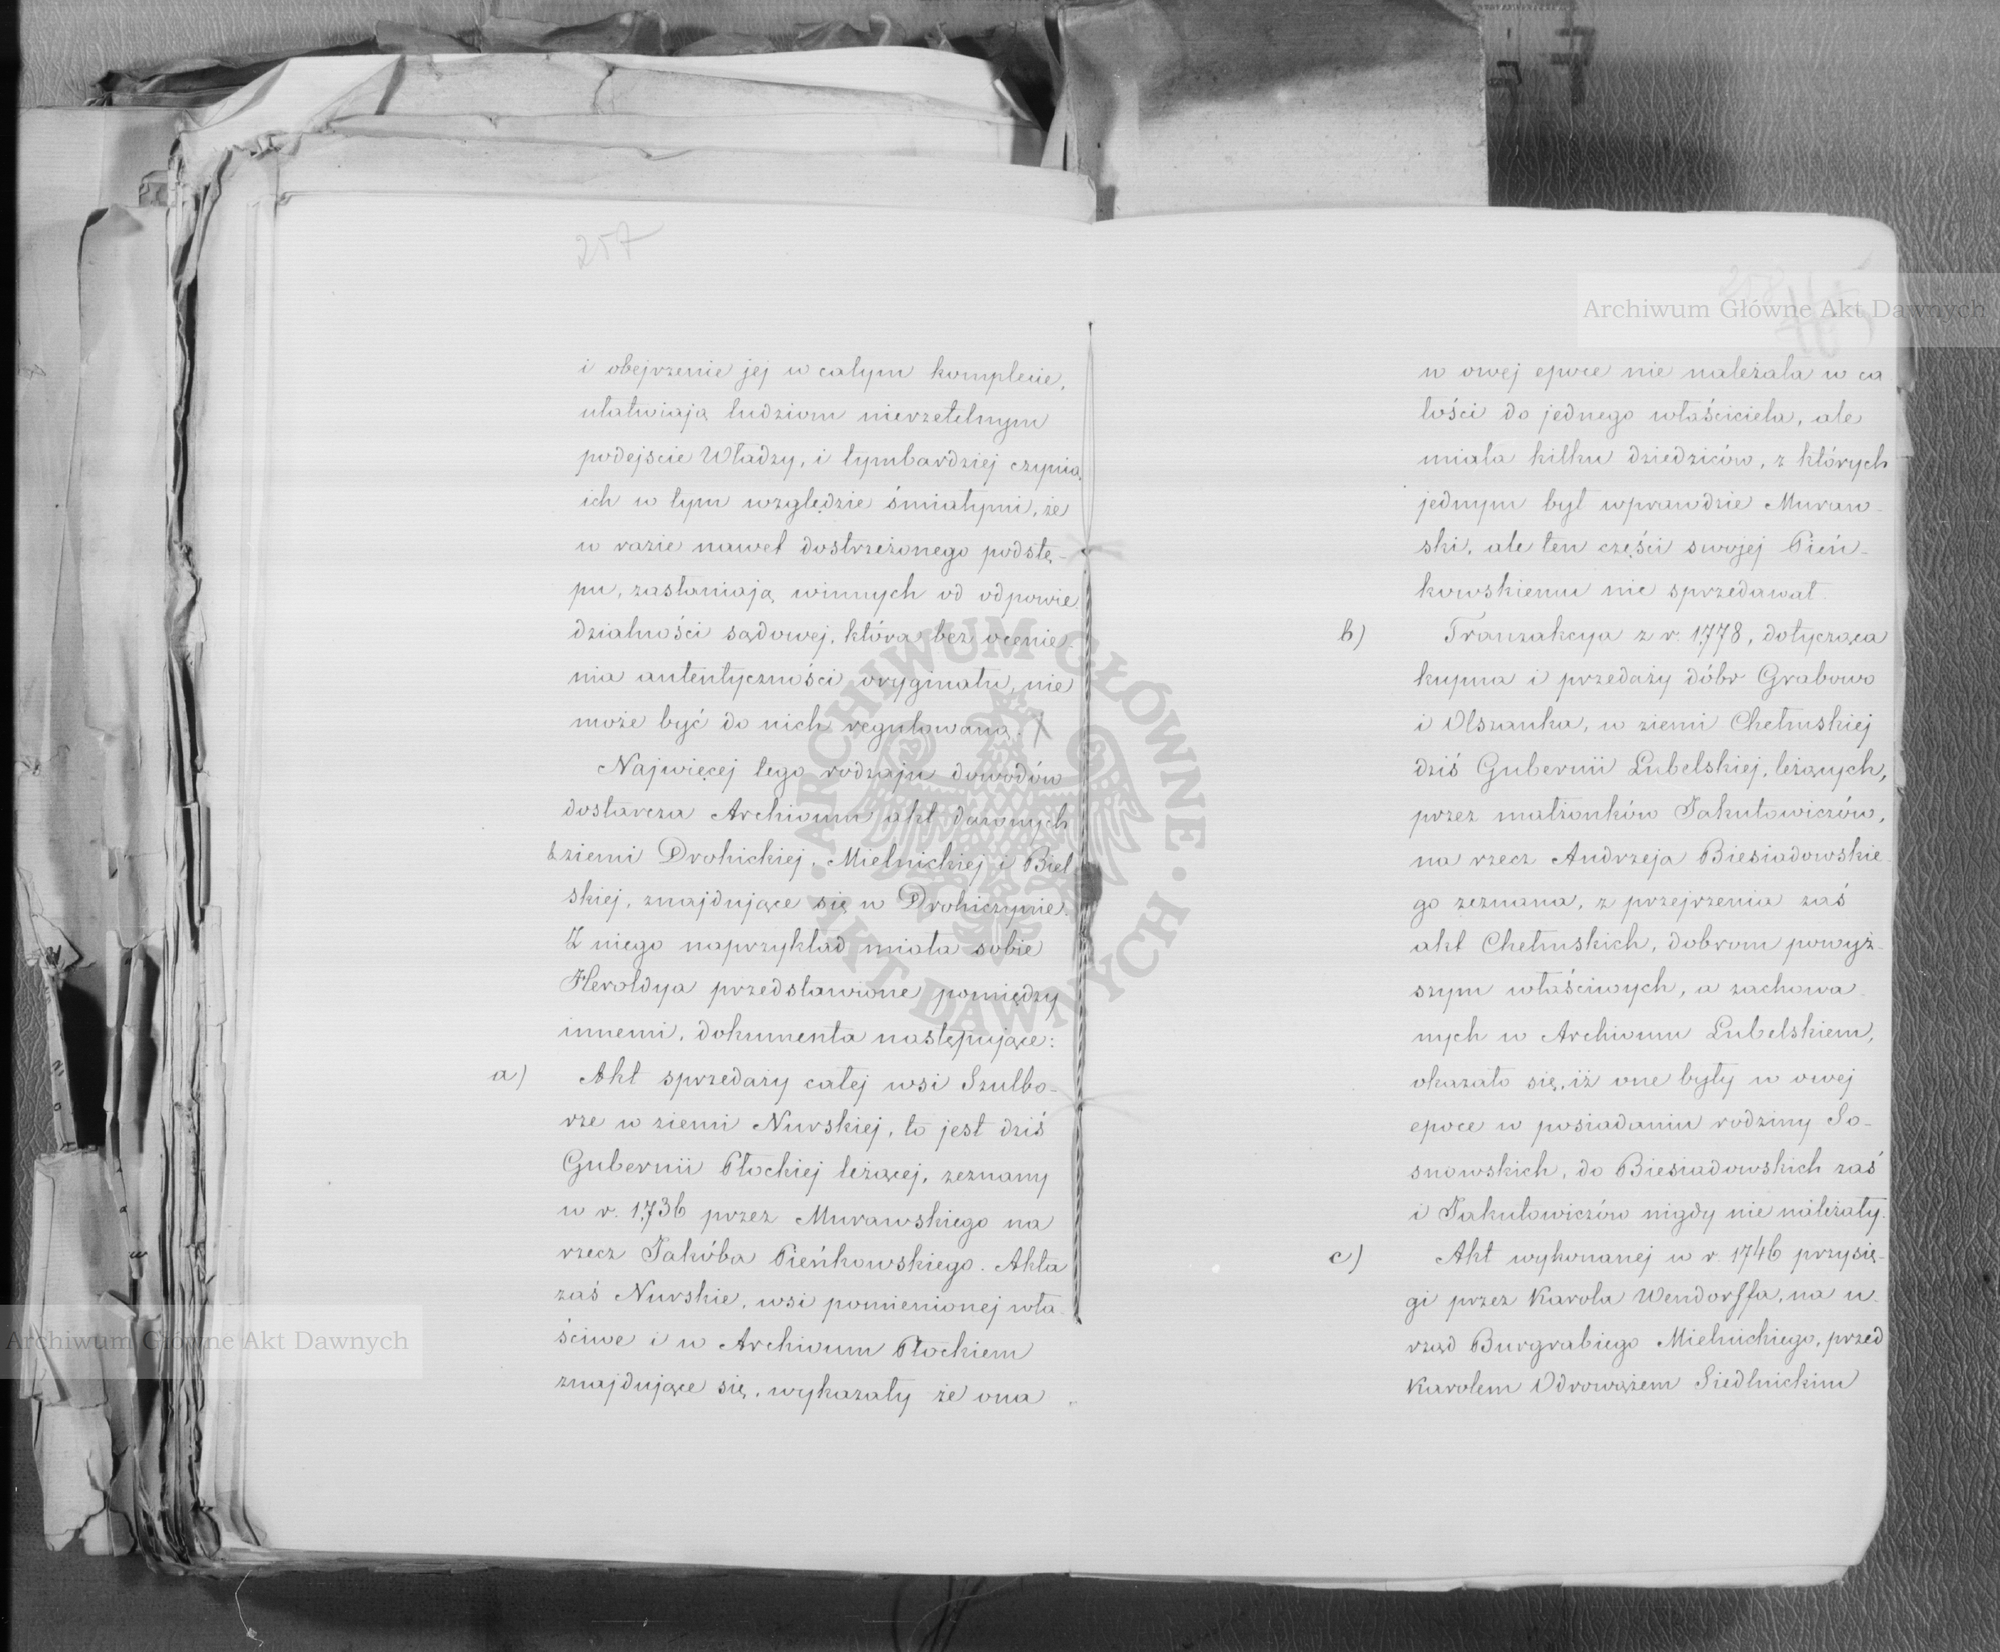 257
i obejrzenie jej w całym komplecie,
ułatwiają ludziom nierzetelnym
podejscie Władzy, i tymbardziej czynią
ich w tym względzie śmiałymi, że
w razie nawet dostrzeżonego podstę-
pu, zasłaniają winnych od odpowie
dzialności sądowej, która bez ocenie-
nia autentyczności oryginału, nie
może być do nich regulowaną.
Najwięcej tego rodzaju dowodów
dostarcza Archiwum akt dawnych
z ziemi Drohickiej, Mielnickiej i Biel
skiej, znajdujące się w Drohiczynie.
Z niego naprzykład miała sobie
Heroldya przedstawione pomiędzy
innemi, dokumenta następujące:
a) Akt sprzedaży całej wsi Szulbo-
rze w ziemi Nurskiej, to jest dziś
Gubernii Płockiej leżącej, zeznany
w r. 1736 przez Murawskiego na
rzecz Jakóba Pieńkowskiego. Akta
zaś Nurskie, wsi pomienionej wła-
ściwe i w Archiwum Płockiem
znajdujące się, wykazały że ona
w owej epoce nie należała w ca
łości do jednego właściciela, ale
miała kilku dziedziców, z których
jednym był wprawdzie Muraw-
ski, ale ten części swojej Pień-
kowskiemu nie sprzedawał.
b) Tranzakcya z r. 1778, dotycząca
kupna i przedaży dóbr Grabowo
i Olszanka, w ziemi Chełmskiej
dziś Gubernii Lubelskiej, leżących,
przez małżonków Jakutowiczów,
na rzecz Andrzeja Biesiadowskie-
go zeznana, z przejrzenia zaś
akt Chełmskich, dobrom powyż-
szym właściwych, a zachowa-
nych w Archiwum Lubelskiem,
okazało się, iż one były w owej
epoce w posiadaniu rodziny So-
snowskich, do Biesiadowskich zaś
i Jakutowiczów nigdy nie należały.
c) Akt wykonanej w r. 1746 przysię-
gi przez Karola Wendorffa, na u-
rząd Burgrabiego Mielnickiego, przed
Karolem Odrowążem Siedlnickim
Archiwum Główne Akt Dawnych
Archiwum Główne Akt Dawnych
ARCHIWUM GŁÓWNE · AKT DAWNYCH ·